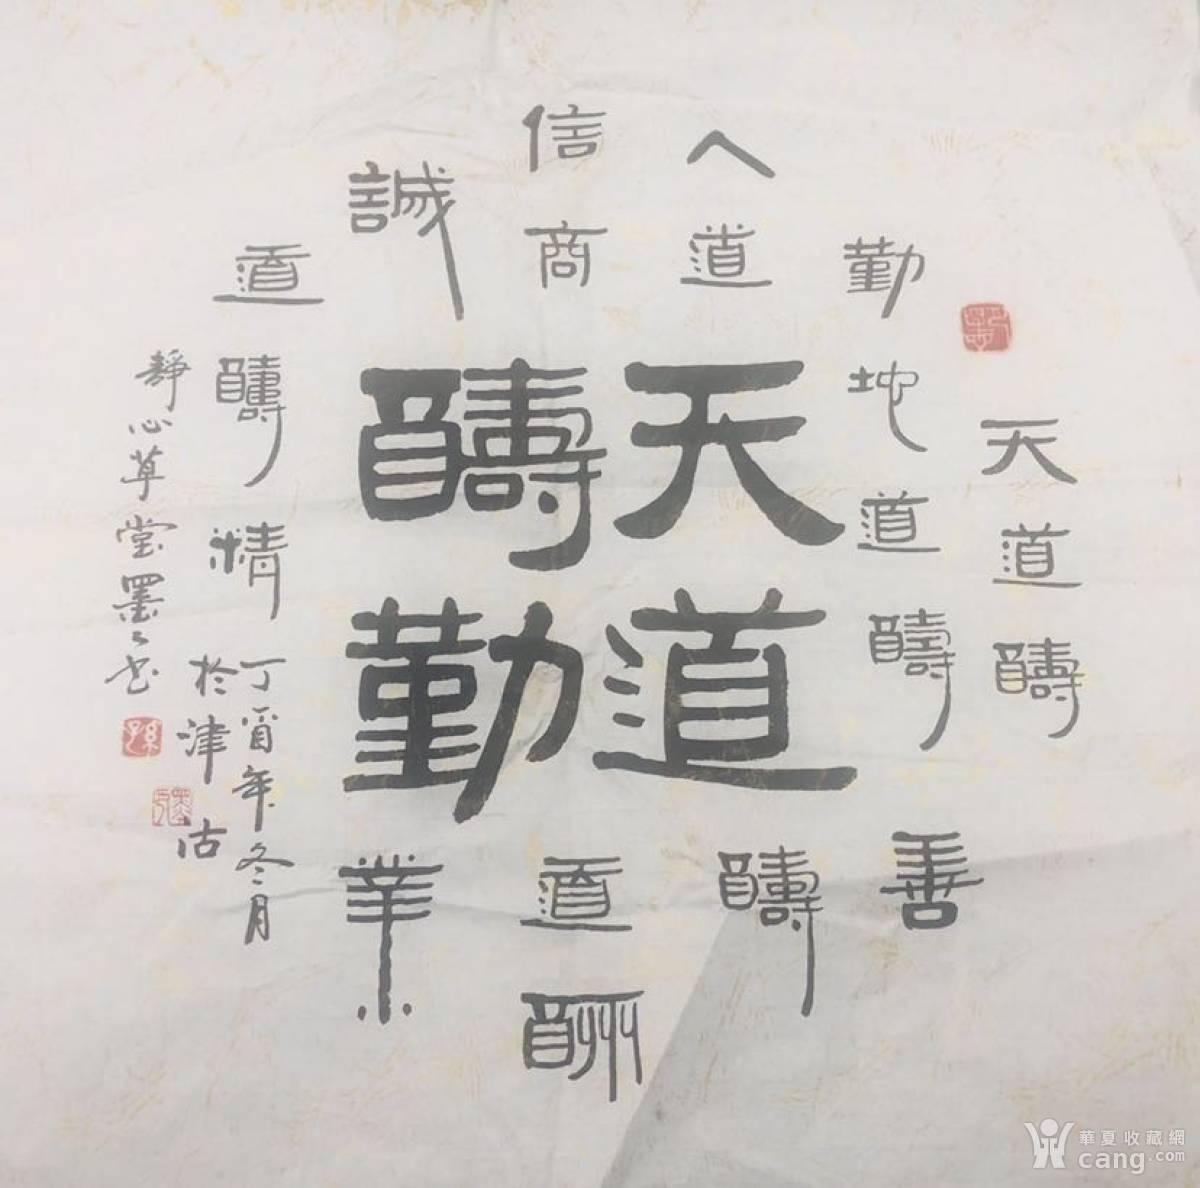 天道醻
勤地道醻善
人道醻
信商道酬
誠業
道醻精
天道
醻勤
丁酉年冬月
於津沽
靜心草堂墨々书
華夏收藏網
cang.com